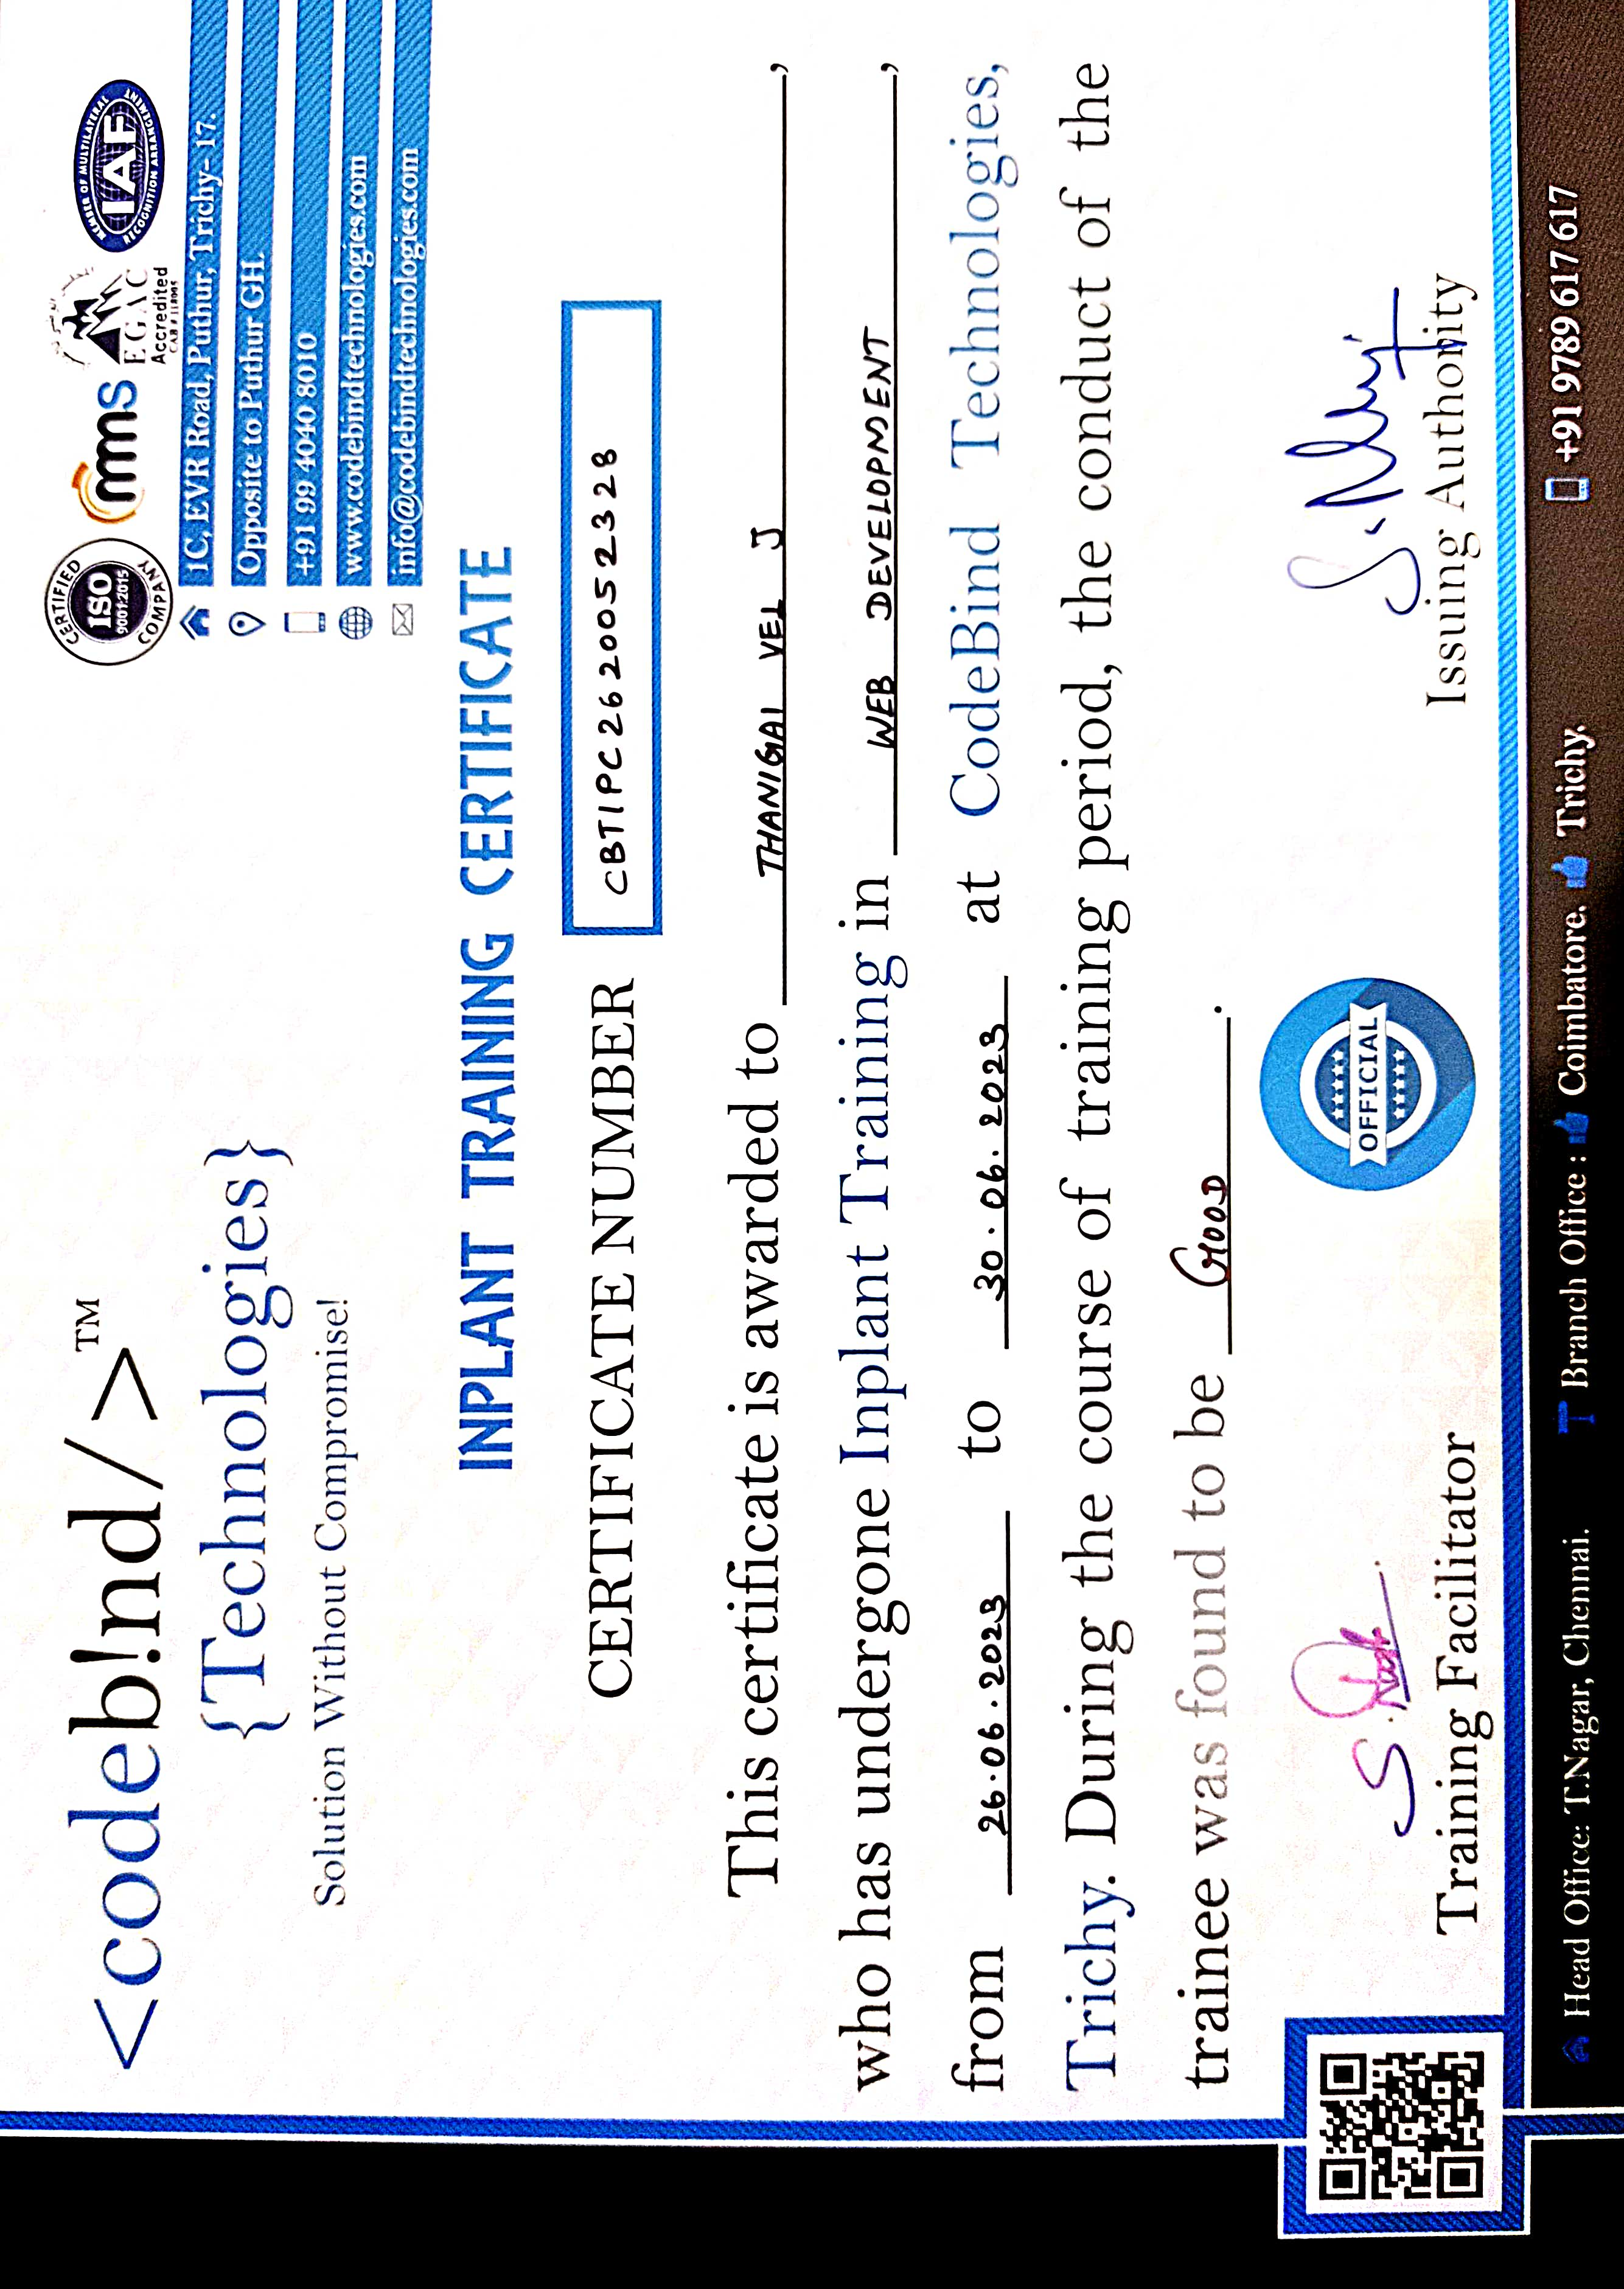 <codeb!nd/>™
{Technologies}
Solution Without Compromise!
CERTIFIED
ISO
9001:2015
COMPANY
mms
EGAC
Accredited
MEMBER OF MULTILATERAL
IAF
RECOGNITION ARRANGEMENT
1C, EVR Road, Puthur, Trichy- 17.
Opposite to Puthur GH.
+91 99 4040 8010
www.codebindtechnologies.com
info@codebindtechnologies.com
INPLANT TRAINING CERTIFICATE
CERTIFICATE NUMBER CBTIPC2620052328
This certificate is awarded to THANIGAI VEL J,
who has undergone Inplant Training in WEB DEVELOPMENT,
from 26.06.2023 to 30.06.2023 at CodeBind Technologies,
Trichy. During the course of training period, the conduct of the
trainee was found to be GOOD.
OFFICIAL
Training Facilitator
Issuing Authority
Head Office: T.Nagar, Chennai. Branch Office : Coimbatore. Trichy. +91 9789 617 617